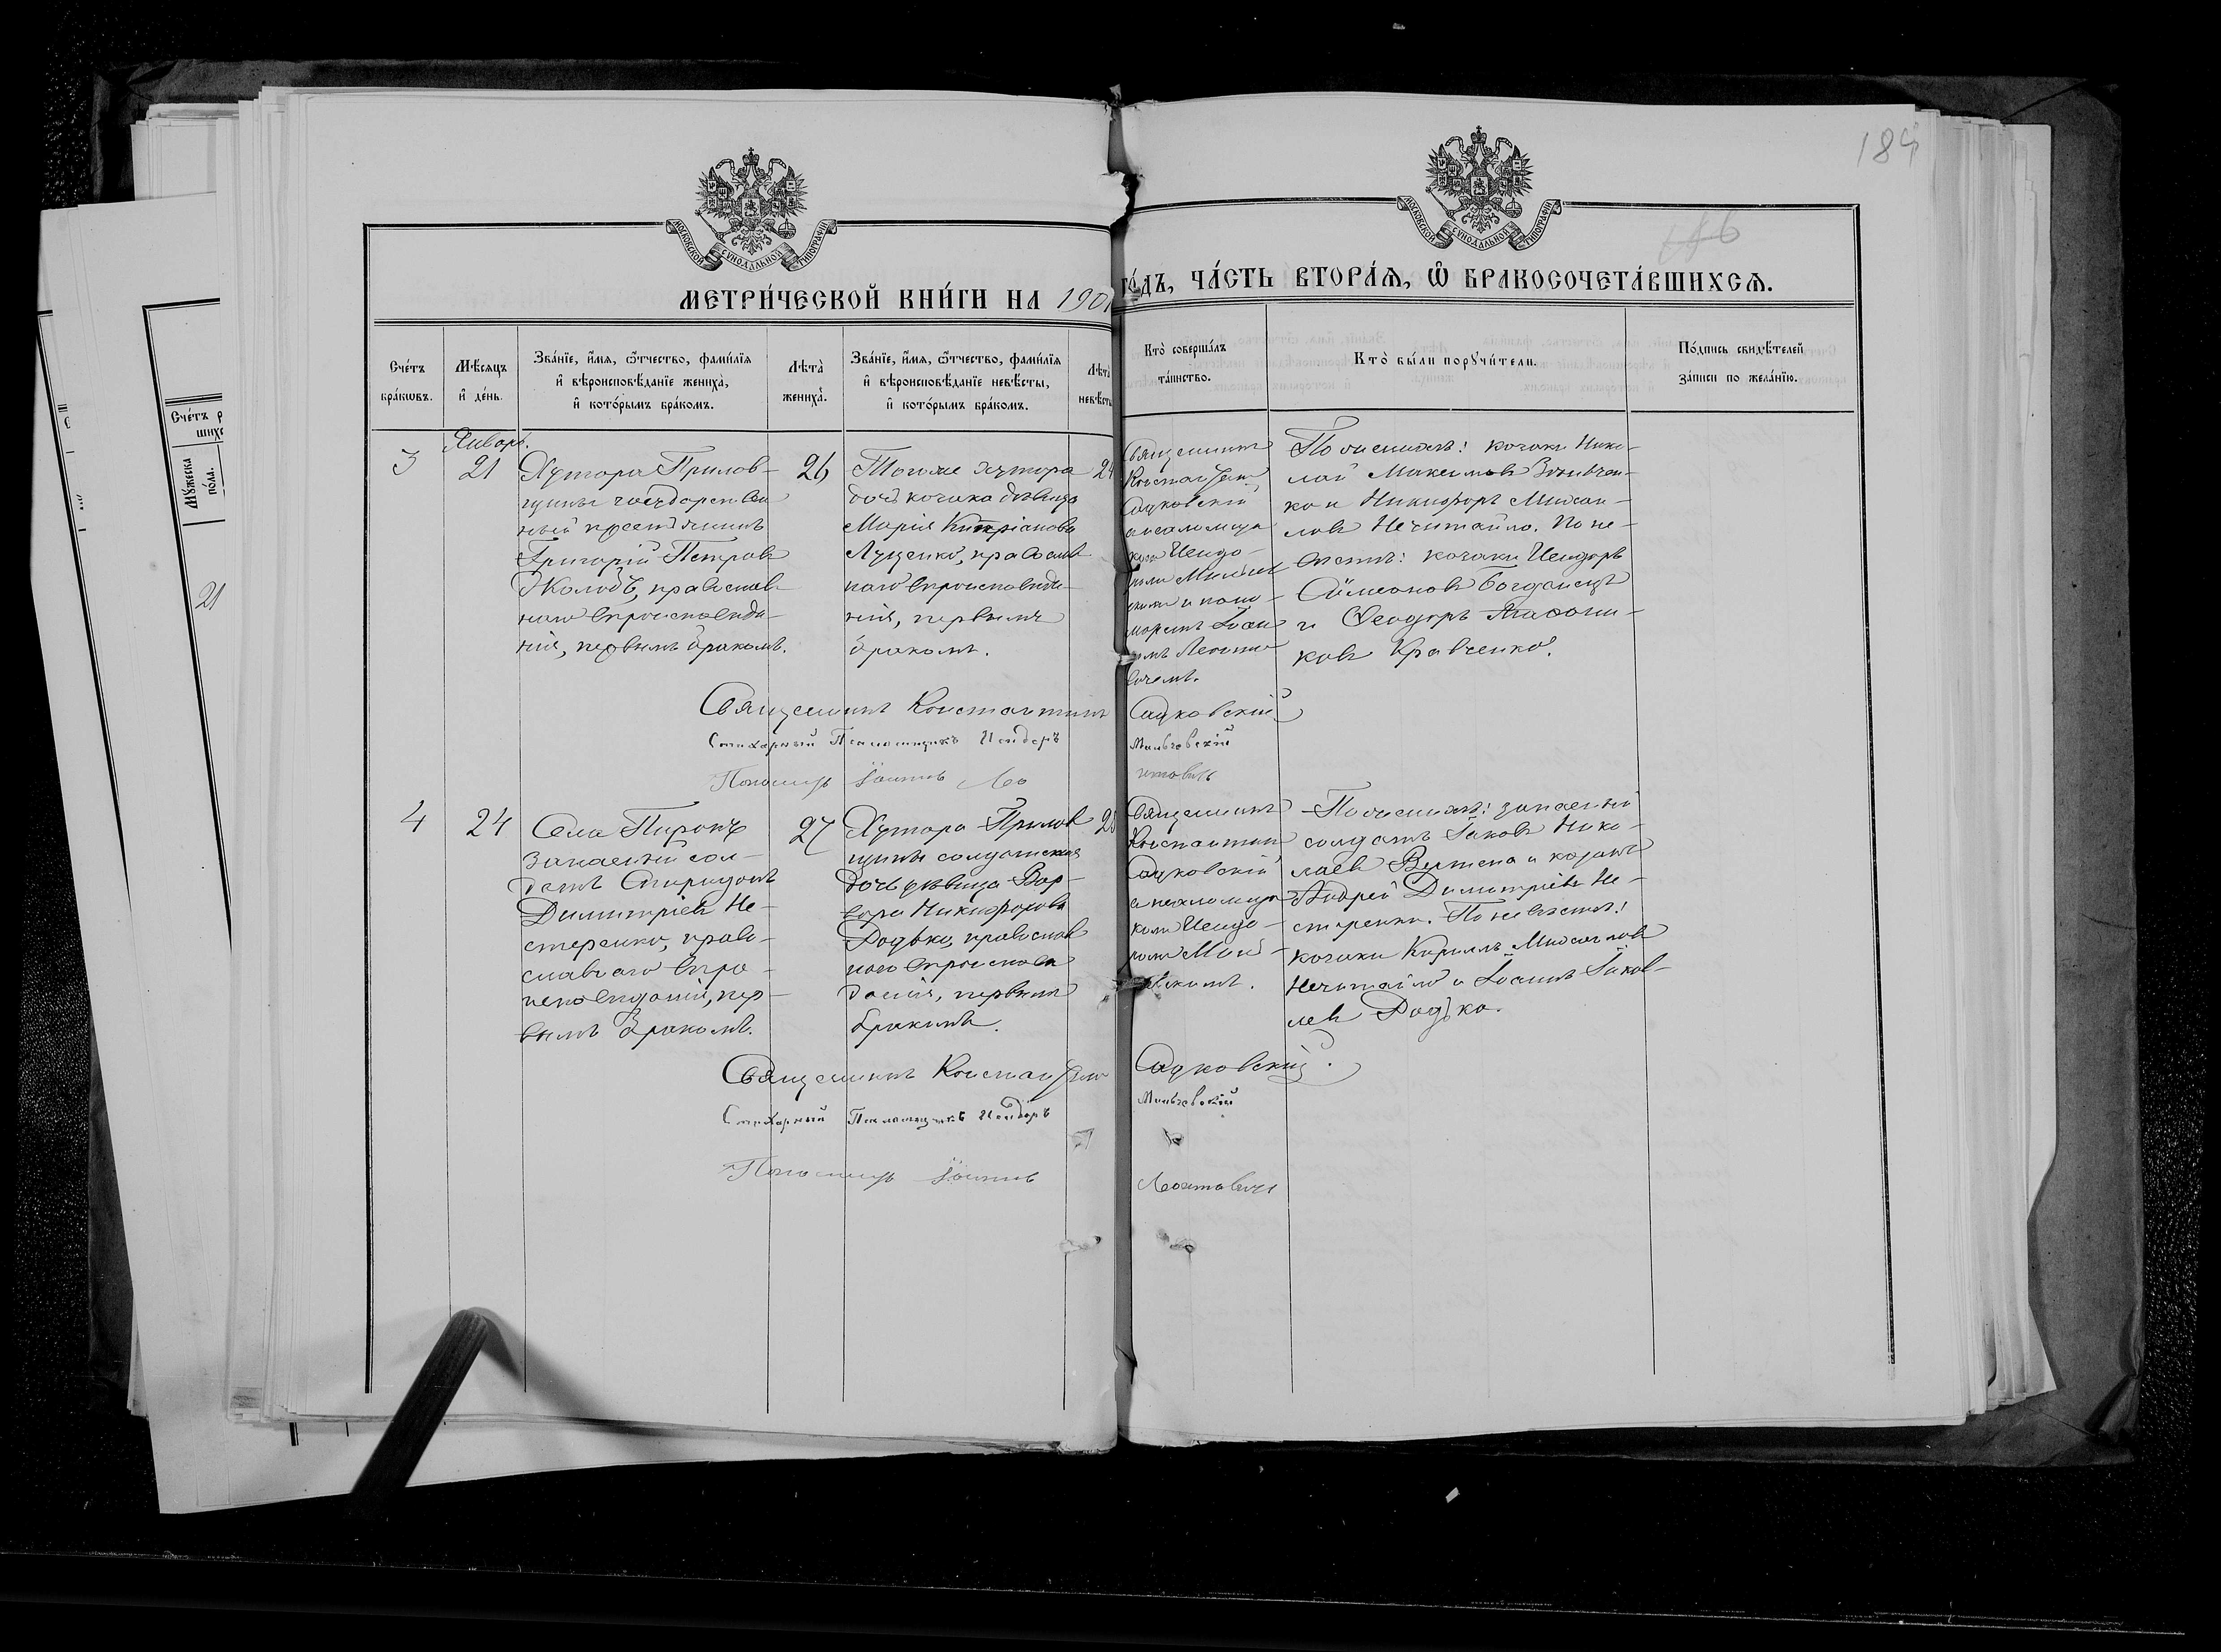 184
МОСКОВСКОЙ СѴНОДАЛЬНОЙ ТИПОГРАФІИ
МОСКОВСКОЙ СѴНОДАЛЬНОЙ ТИПОГРАФІИ
МЕТРИ́ЧЕСКОЙ КНИ́ГИ НА 1901
ГО́ДЪ, ЧА́СТЬ ВТОРА́Ѧ, Ѿ БРАКОСОЧЕТА́ВШИХСѦ.
Сче́тъ бра́кѡвъ.
Мѣ́сѧцъ и де́нь.
Зва́нїе, и́мѧ, ѻ҆́тчество, фами́лїѧ
и҆ вѣроисповѣ́данїе жениха̀,
и҆ кото́рымъ бра́комъ.
Лѣта̀ жениха̀.
Зва́нїе, и́мѧ, ѻ҆́тчество, фами́лїѧ
и҆ вѣроисповѣ́данїе невѣ́сты,
и҆ кото́рымъ бра́комъ.
Лѣта̀ невѣ́сты
Кто̀ соверша́лъ
та́инство.
Кто̀ бы́ли порꙋчи́тели.
По́дпись свидѣ́телей
за́писи по жела́нїю.
Сче́тъ р
Мꙋ́жеска по́ла.
21
3
Январь.
21
Хутора Прилов-
щины государствен
ный крестьянинъ
Григорій Петровъ
Жолобъ, православ-
наго вѣроисповѣда-
нія, первымъ бракомъ.
26
Того же хутора
дочь козака дѣвица
Марія Кипріанова
Луценко, православ
наго вѣроисповѣда-
нія, первымъ
бракомъ.
24
Священникъ
Константинъ
Садковскій
с псаломщи
комъ Исидо-
ромъ
и поно-
маремъ Іоан
номъ Леонто
вичемъ.
По женихѣ: козаки Нико-
лай Максимовъ
ко и Никифоръ Михаи-
ловъ Нечитайло. По не-
вѣстѣ: козаки Исидоръ
Симеоновъ Богданецъ
и Ѳеодоръ
ковъ Кравченко.
Священникъ Константинъ Садковскій
Стихарный Псаломщикъ Исидоръ
Пономарь Іоаннъ Леонтовичъ
4
24
Села Пироги
запасный сол-
датъ Спиридонъ
Димитріевъ Не-
стеренко, право-
славнаго вѣро-
исповѣданія, пер-
вымъ бракомъ.
27
Хутора Прилов
щины солдатская
дочь дѣвица Вар-
вара Никифорова
Родько, православ
наго вѣроисповѣ
данія, первымъ
бракомъ.
Священникъ
Константинъ
Садковскій
с псаломщи
комъ Исидо-
ромъ
По женихѣ: запасный
солдатъ Іаковъ Нико-
лаевъ и козакъ
Андрей Димитріевъ Не-
стеренко. По невѣстѣ:
козаки Кириллъ Михаиловъ
Нечитайло и Іоаннъ Іаков-
левъ Родько.
Священникъ Константинъ Садковскій.
Стихарный Псаломщикъ Исидоръ
Пономарь Іоаннъ Леонтовичъ